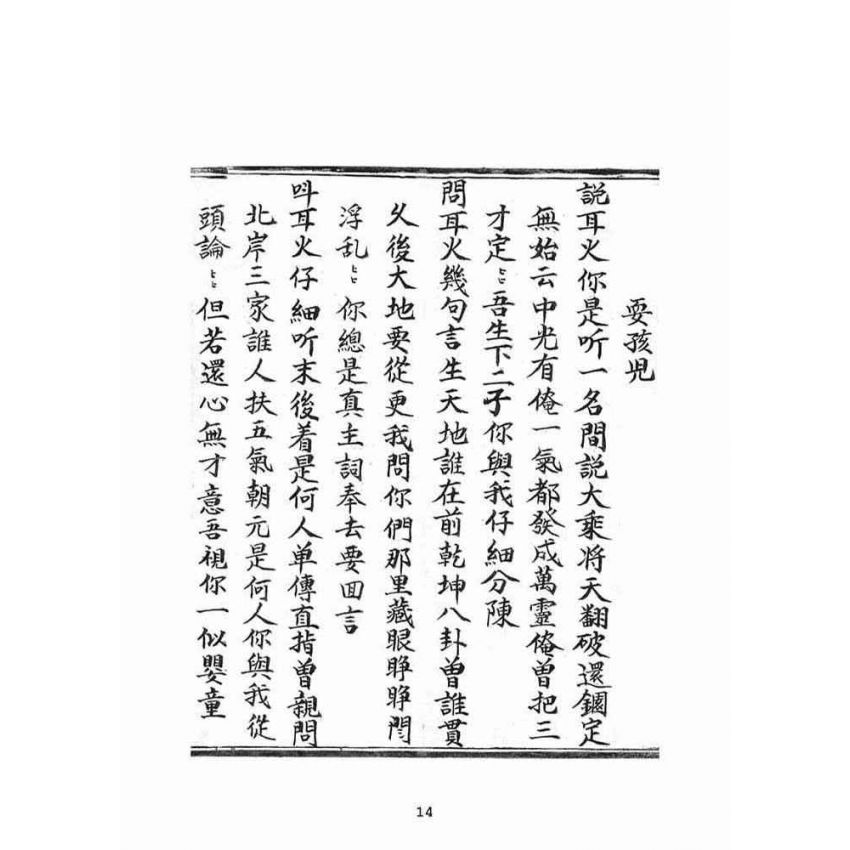 耍孩児
説耳火你是听一名間説大乘将天翻破還錮定
無始云中光有俺一氣都發成萬靈俺曾把三
才定〻吾生下二子你與我仔細分陳
問耳火幾句言生天地誰在前乾坤八卦曾誰貫
久後大地要從更我問你們那里藏眼睁睁閆
浮乱〻你總是真主詞奉去要回言
呌耳火仔細听末後着是何人单傳直指曾親問
北岸三家誰人扶五氣朝元是何人你與我從
頭論〻但若還心無才意吾視你一似嬰童
14